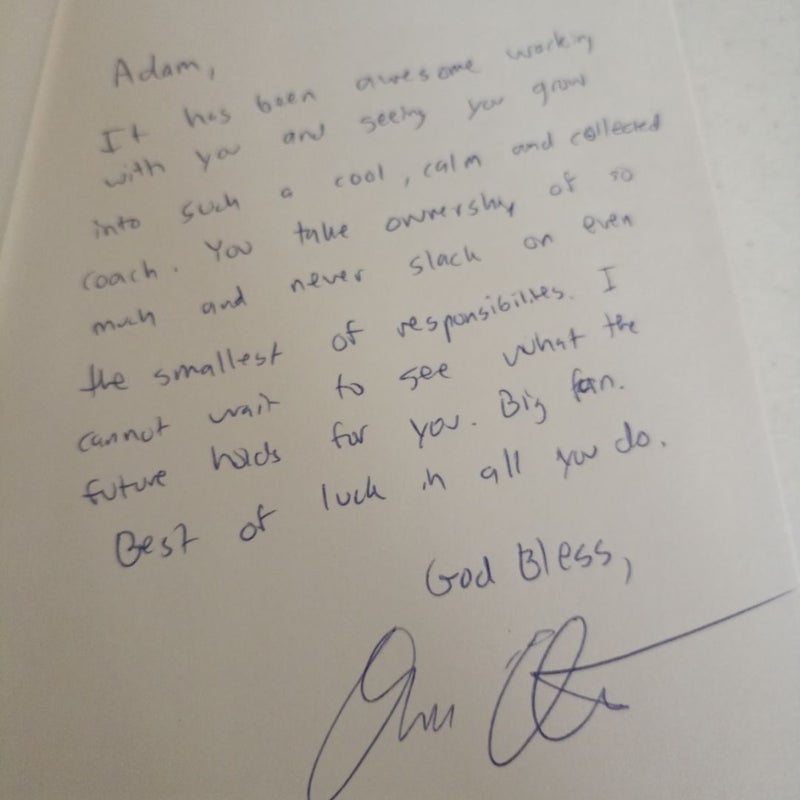 Adam,
It has been awesome working
with you and seeing you grow
into such a cool, calm and collected
coach. You take ownership of so
much and never slack on even
the smallest of responsibilities. I
cannot wait to see what the
future holds for you. Big fan.
Best of luck in all you do.
God Bless,